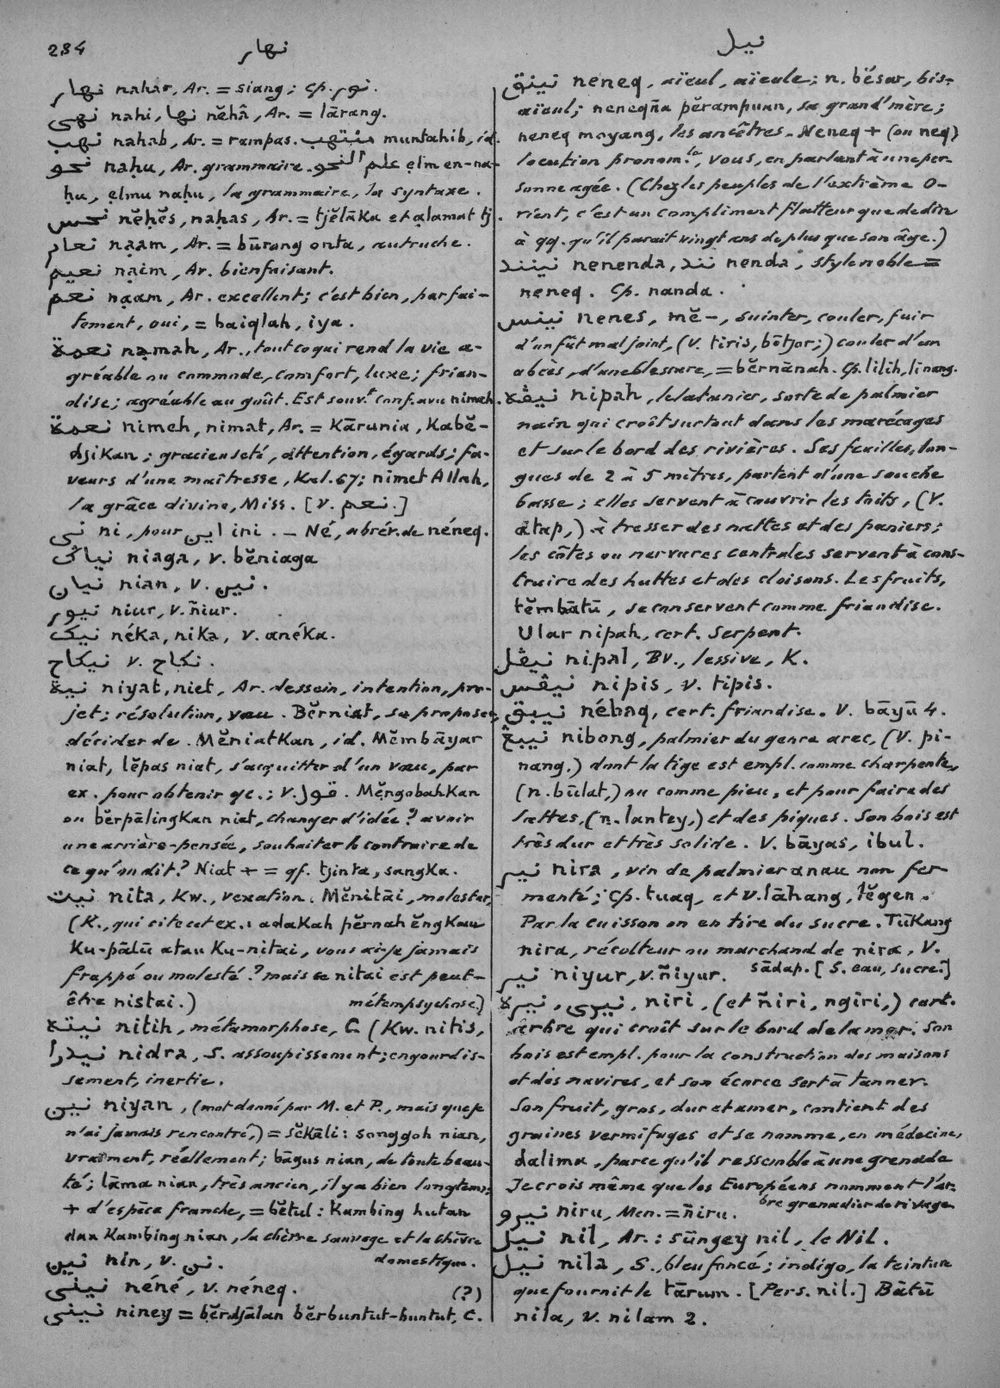 234
نهار
نيل
نهار nahar, Ar. = siang; cp. نور.
نهى nahi, نها nĕhâ, Ar. = lārang.
نهب nahab, Ar. = rampas. منتهب muntahib, id.
نحو naḥu, Ar. grammaire. علم النحو ẹlm en-na-
ḥu, ẹlmu naḥu, la grammaire, la syntaxe.
نحس nĕḥĕs, naḥas, Ar. = tjĕlāka et ạlamat tj.
نعام nạam, Ar. = būrong onta, autruche.
نعيم nạim, Ar. bienfaisant.
نعم nạam, Ar. excellent; c'est bien, parfai-
tement, oui, = baiqlah, iya.
نعمة nạmah, Ar., tout ce qui rend la vie a-
gréable ou commode, comfort, luxe; frian-
dise; agréable au goût. Est souv.t conf. avec nimeh.
نعمة nimeh, nimat, Ar. = Kārunia, Kabĕ-
djiKan; gracieuseté, attention, égards; fa-
veurs d'une maîtresse, Kal. 67; nimet Allah,
la grâce divine, Miss. [v. نعم.]
نى ni, pour اين ini. — Né, abrév. de néneq.
نياݢ niaga, v. bĕniaga
نيان nian, v. نين.
نيور niur, v. ñiur.
نيك néka, nika, v. anéka.
نيكاح v. نكاح.
نية niyat, niet, Ar. dessein, intention, pro-
jet; résolution, vœu. Bĕrniat, se proposer,
décider de. MĕniatKan, id. Mĕmbāyar
niat, lĕpas niat, s'acquitter d'un vœu, par
ex. pour obtenir qc.; v. قول. MĕngobahKan
ou bĕrpālingKan niat, changer d'idée? avoir
une arrière-pensée, souhaiter le contraire de
ce qu'on dit? Niat + = qf. tjinta, sangKa.
نيت nita, Kw., vexation. Mĕnitāi, molester,
(K., qui cite cet ex.: adaKah pĕrnah ĕngKau
Ku-pālū atau Ku-nitai, vous ai-je jamais
frappé ou molesté? mais ce nitai est peut-
être nistai.) métempsychose)
نيته nitih, métamorphose, C. (Kw. nitis,
نيدرا nidra, S. assoupissement; engourdis-
sement, inertie.
نين niyan, (mot donné par M. et P., mais que je
n'ai jamais rencontré,) = sĕKāli: songgoh nian,
vraiment, réellement; bāgus nian, de toute beau-
té; lāma nian, très ancien, il y a bien longtems;
+ d'espèce franche, = bĕtul: Kambing hutan
dan Kambing nian, la chèvre sauvage et la chèvre
نين nin, v. نن. domestique.
نينى néné, v. néneq. (?)
نينى niney = bĕrdjālan bĕrbuntut-buntut, C.
نينق neneq, aïeul, aïeule; n. bĕsar, bis-
aïeul; neneqña pĕrampuan, sa grand'mère;
neneq moyang, les ancêtres. Neneq + (ou neq)
locution pronom.le, vous, en parlant à une per
sonne agée. (Chez les peuples de l'extrème O-
rient, c'est un compliment flatteur que de dire
à qq. qu'il parait vingt ans de plus que son âge.)
نينند nenenda, نند nenda, style noble =
neneq. Cp. nanda.
نينس nenes, mĕ-, suinter, couler, fuir
d'un fût mal joint, (v. tiris, bōtjor;) couler d'un
abcès, d'une blessure, = bĕrnānah. Cp. lilih, linang.
نيڤه nipah, le latanier, sorte de palmier
nain qui croît surtout dans les marécages
et sur le bord des rivières. Ses feuilles, lon-
gues de 2 à 5 mètres, partent d'une souche
basse; elles servent à couvrir les toits, (v.
ātap,) à tresser des nattes et des paniers;
les côtes ou nervures centrales servent à cons-
truire des huttes et des cloisons. Les fruits,
tĕmbātū, se conservent comme friandise.
Ular nipah, cert. serpent.
نيڤل nipal, Bv., lessive, K.
نيڤس nipis, v. tipis.
نيبق nébaq, cert. friandise. V. bāyū 4.
نيبڠ nibong, palmier du genre arec, (v. pi-
nang.) dont la tige est empl. comme charpente,
(n. būlat,) ou comme pieu, et pour faire des
lattes, (n. lantey,) et des piques. Son bois est
très dur et très solide. V. bāyas, ibul.
نير nira, vin de palmier anau non fer
menté; Cp. tuaq, et v. lāhang, lĕgen.
Par la cuisson on en tire du sucre. TūKang
nira, récolteur ou marchand de nira, v.
sādap. [S. eau, sucre.]
نير niyur, v. ñiyur.
نيره, نيرى, niri, (et ñiri, ngiri,) cert.
arbre qui croît sur le bord de la mer. Son
bois est empl. pour la construction des maisons
et des navires, et son écorce sert à tanner.
Son fruit, gros, dur et amer, contient des
graines vermifuges et se nomme, en médecine,
dalima, parce qu'il ressemble à une grenade
Je crois même que les Européens nomment l'ar
bre grenadier de rivage.
نيرو niru, Men. = ñiru.
نيل nil, Ar.: sūngey nil, le Nil.
نيل nila, S., bleu foncé; indigo, la teinture
que fournit le tārum. [Pers. nil.] Bātū
nila, v. nilam 2.